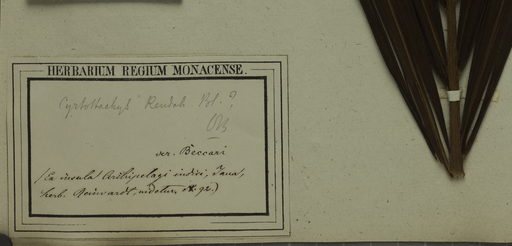 HERBARIUM REGIUM MONACENSE.
Cyrtostachys Rendah Bl. ?
scr. Beccari
(Ex insula Archipelagi indici, Java,
herb. Reinwardt, videtur, 92.)